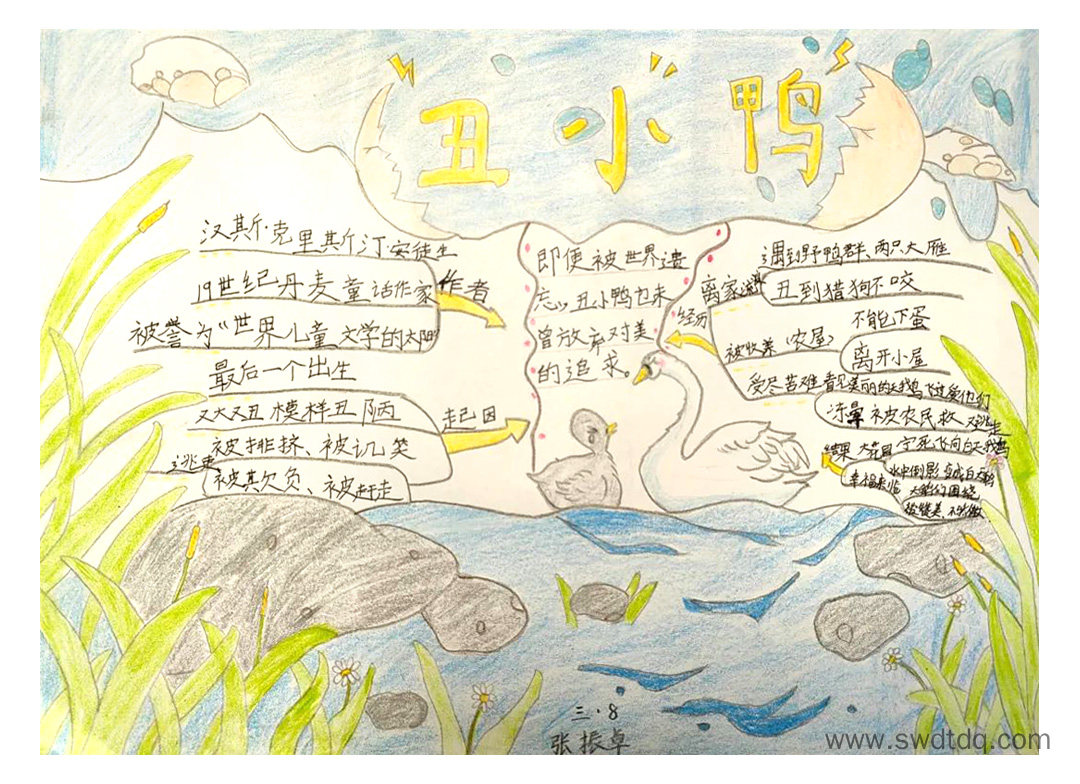 丑小鸭
汉斯·克里斯汀·安徒生
19世纪丹麦童话作家
作者
被誉为“世界儿童文学的太阳”
最后一个出生
又大又丑模样丑陋
被排挤、被讥笑
逃走
被欺负、被赶走
起因
即便被世界遗
忘，丑小鸭也未
曾放弃对美
的追求。
遇到野鸭群、两只大雁
离家
丑到猎狗不咬
经历
不能下蛋
被收养（农屋）
离开小屋
受尽苦难 看见美丽的天鹅飞过爱他们
冻晕 被农民救 又逃走
结果
大花园
宁死飞向白天鹅
水中倒影 变成白天鹅
幸福来临
天鹅们围绕
被赞美、不骄傲
三·8
张振卓
www.swdtdq.com